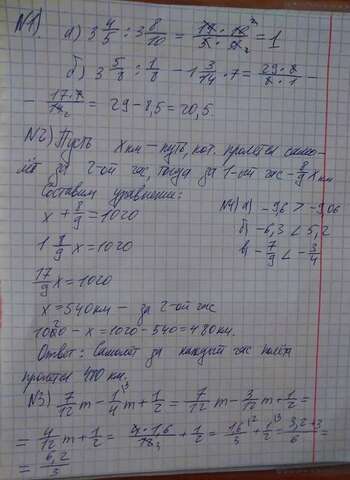 №1) а) 3 4/5 : 3 8/10 = 19 · 10 2 / 5 · 19 2 = 1
б) 3 5/8 : 1/8 - 1 3/14 · 7 = 29 · 8 / 8 · 1 -
- 17 · 7 / 14 2 = 29 - 8,5 = 20,5.
№2) Пусть x км - путь, кот. пролетел само-
лёт за 2-ой час, тогда за 1-ой час - 8/9 x км
Составим уравнение:
x + 8/9 = 1020
1 8/9 x = 1020
17/9 x = 1020
x = 540 км - за 2-ой час
1020 - x = 1020 - 540 = 480 км.
Ответ: самолёт за каждый час полёта
пролетел 480 км.
№4) а) -9,6 > -9,06
б) -6,3 < 5,2
в) -7/9 < -3/4
№3) 7/12 m - 1/4 m + 1/2 = 7/12 m - 3/12 m + 1/2 =
= 4/12 m + 1/2 = 4 · 1,6 / 12 3 + 1/2 = 1,6/3 + 1/2 = 3,2+3 / 6 =
= 6,2/